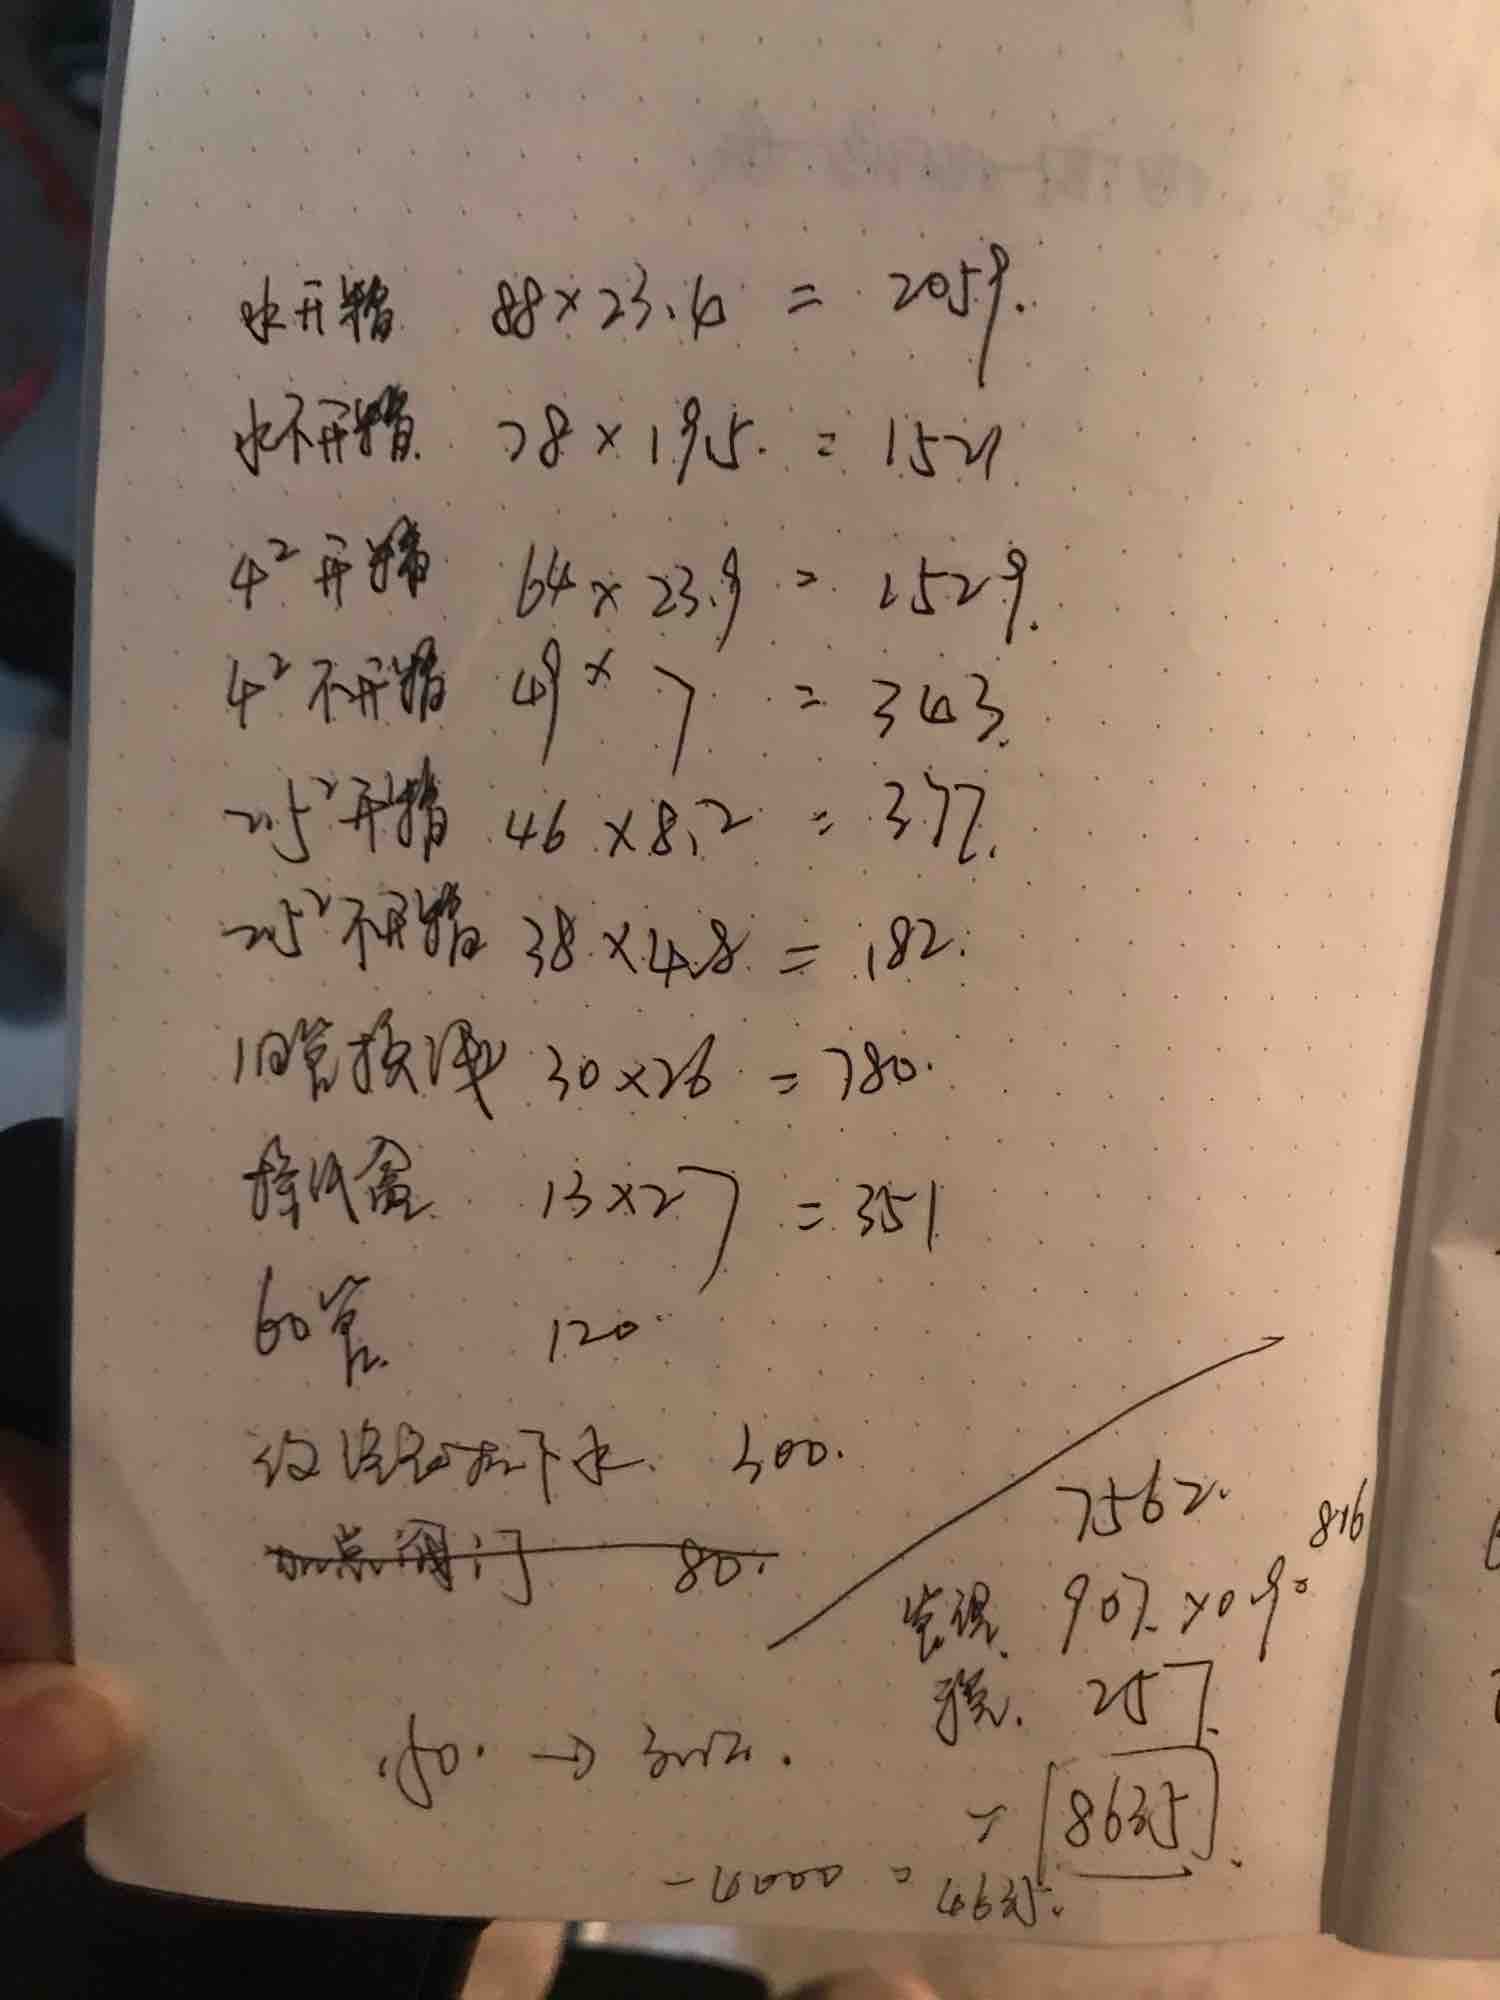 水开槽 88×23.4 = 2059.
水不开槽. 78×19.5. = 1521
4² 开槽 64×23.9 = 1529.
4² 不开槽 49×7 = 343.
2.5² 开槽 46×8.2 = 377.
2.5² 不开槽 38×4.8 = 182.
旧管换线 30×26 = 780.
择线盒. 13×27 = 351
60管. 120.
改 下水. 300.
加点阀门 80.
7562.
管理. 907.×0.9= 816
税. 257.
150. →
= 8635.
-4000 = 4635.